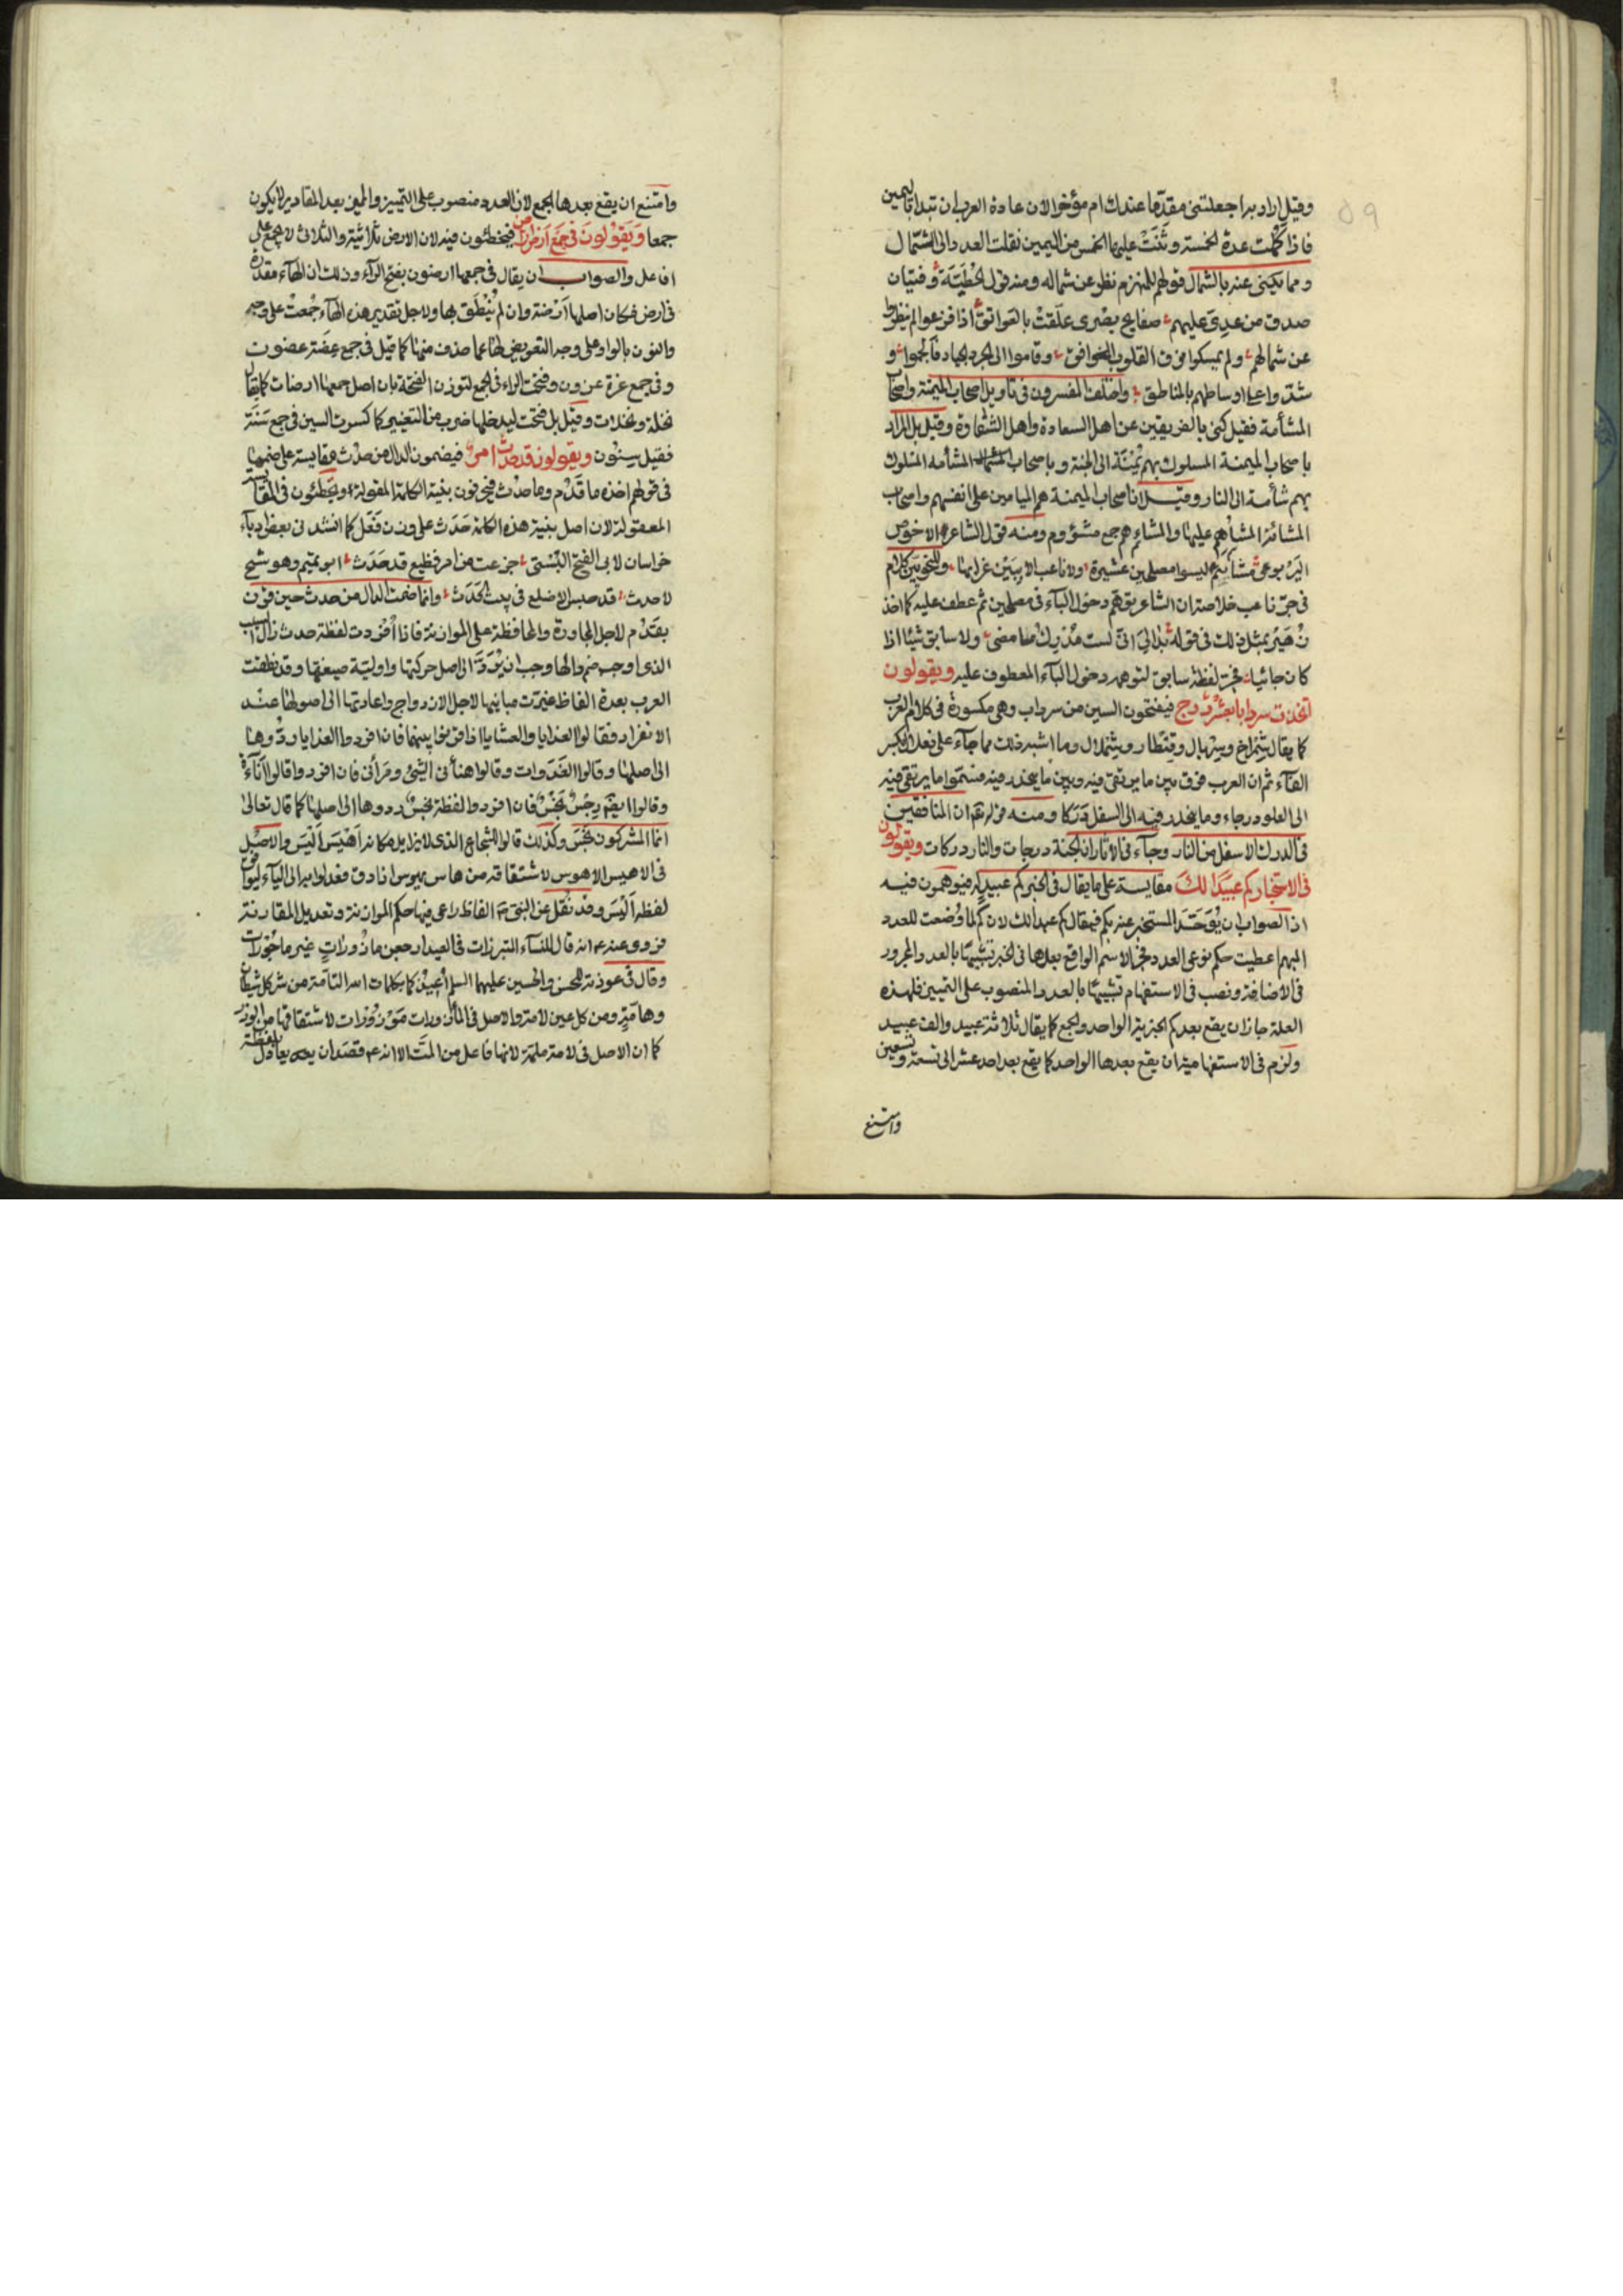 ٥٩
وقيل اراد به اجعلتنى مقدّما عندك ام مؤخرا لان عادة العرب ان تبدأ باليمين
فاذا كملت عدة الخمسة وثنت عليها الخمس من اليمين نقلت العدد الى الشمال
ومما يكنى عنه بالشمال قولهم للمنهزم نظر عن شماله ومنه قول الحطيئة وفتيان
صدق من عدى عليهم صفايح بصرى علقت بالعواتق اذا فزعوا لم ينظروا
عن شمالهم ولم يمسكوا فوق القلوب الخوافق وقاموا الى الجرد الجياد فالجموا و
شدوا على اوساطهم بالمناطق واختلف المفسرون فى تأويل اصحاب الميمنة واصحاب
المشأمة فقيل كنى بالفريقين عن اهل السعادة واهل الشقاوة وقيل بل المراد
باصحاب الميمنة المسلوك بهم يمنة الى الجنة وباصحاب المشأمه المسلوك
بهم شأمة الى النار وقيل ان اصحاب الميمنة هم الميامين على انفسهم واصحاب
المشائم عليها والمشائم هم جمع مشؤوم ومنه قول الشاعر الاخوص
اليربوعى مشائيم ليسوا مصلحين عشيرة ولا ناعب الا ببين غرابها وللنحويين كلام
فى جرّ ناعب خلاصته ان الشاعر توهم دخول الباء فى مصلحين ثم عطف عليه كما اخذ
زهير بمثل ذلك فى قوله بدا لى انى لست مدرك ما مضى ولا سابق شيئا اذا
كان جائيا فجر لفظة سابق لتوهمه دخول الباء المعطوف عليه ويقولون
اتخذت سردابا بعشر درج فيفتحون السين من سرداب وهى مكسورة فى كلام العرب
كما يقال شمراخ وسربال وقنطار وشملال وما اشبه ذلك مما جآء على فعلال بكسر
الفآء ثم ان العرب فرق بين ما يرتقى فيه وبين ما ينحدر فيه فسموا ما يرتقى فيه
الى العلو درجاء وما ينحدر فيه الى السفل دركا ومنه قوله تعم ان المنافقين
فى الدرك الاسفل من النار وجآء فى الاثار ان الجنة درجات والنار دركات ويقولون
فى الاستخبار كم عبيدا لك مقايسة على ما يقال فى الخبر كم عبيد له فيوهمون فيه
اذ الصواب ان يوحد المستخبر عنه بكم فيقال كم عبدا لك لان كم لما وضعت للعدد
المبهم اعطيت حكم نوعى العدد فجر الاسم الواقع بعدها فى الخبر تشبيها بالعدد المجرور
فى الاضافة ونصب فى الاستفهام تشبيها بالعدد المنصوب على التمييز فلهذه
العلة جاز ان يقع بعد كم الخبرية الواحد والجمع كما يقال ثلاثة عبيد والف عبيد
ولزم فى الاستفهامية ان يقع بعدها الواحد كما يقع بعد احد عشر الى تسعة وتسعين
وامتنع
وامتنع ان يقع بعدها الجمع لان العدد منصوب على التمييز والمميز بعد المقادير لا يكون
جمعا ويقولون فى جمع ارض اراض فيخطئون فيه لان الارض ثلاثية والثلاثى لا يجمع على
افاعل والصواب ان يقال فى جمعها ارضون بفتح الرآء وذلك ان الهآء مقدرة
فى ارض فكان اصلها ارضة وان لم ينطق بها ولاجل تقدير هذه الهآء جمعت على وجه
والنون بالواو على وجه التعويض لها عما حذف منها كما قيل فى جمع عضة عضون
وفى جمع عزة عزون وفتحت الراء فى الجمع لتوذن الفتحة بان اصل جمعها ارضات كما يقال
نخلة ونخلات وقيل بل فتحت ليدخلها ضرب من التغيير كما كسرت السين فى جمع سنة
فقيل سنون ويقولون قد حدث امر فيضمون الدال من حدث مقايسة على ضمها
فى قولهم اخذه ما قدم وما حدث فيحرفون بنية الكلمة المقولة ويخطئون فى المقايسة
المعقولة لان اصل بنية هذه الكلمة حدث على وزن فعل كما انشدنى بعض ادبآء
خراسان لابى الفتح البستى جزعت من امر فظيع قد حدث ابو تميم وهو شيخ
لا حدث قد حبس الاصلع فى بيت الحدث وانما ضمت الدال من حدث حين قرن
بقدم لاجل المجاورة والمحافظة على الموازنة فاذا افردت لفظة حدث زال السبب
الذى اوجب ضم دالها وجب ان يرد الى اصل حركتها واولية صيغتها وقد نطقت
العرب بعدة الفاظ غيرت مبانيها لاجل الازدواج واعادتها الى اصولها عند
الانفراد فقالوا الغدايا والعشايا اذا قرنوا بينهما فان افردوا الغدايا ردوها
الى اصلها وقالوا الغدوات وقالوا هنأنى الشئ ومرأنى فان افردوا قالوا
وقالوا ايضا رجس نجس فان افردوا لفظة نجس ردوها الى اصلها كما قال تعالى
انما المشركون نجس وكذلك قالوا للشجاع الذى لا يزايل مكانه اهيس اليس والاصل
فى الاهيس الاهوس لاشتقاقه من هاس يهوس اذا دق فعدلوا به الى اليآء ليوافق
لفظه اليس وقد نقل عن النبى الفاظ راعى فيها حكم الموازنة وتعديل المقارنة
فروى عنه انه قال للنسآء المتبرزات فى العيد ارجعن مأزورات غير مأجورات
وقال فى عوذته للحسن والحسين عليهما السلم اعيذكما بكلمات الله التامة من شر كل شيطان
وهامة ومن كل عين لامة والاصل فى المأزورات موزورات لاشتقاقها من الوزر
كما ان الاصل فى لامة ملمة لانها فاعل من المت الا انه قصد ان يعادل بلفظة